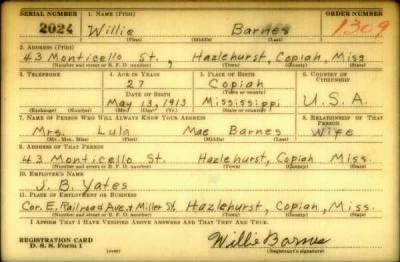 SERIAL NUMBER 1. NAME (Print) ORDER NUMBER
2024 Willie Barnes 1309
(First) (Middle) (Last)
2. ADDRESS (Print)
43 Monticello St., Hazlehurst, Copiah, Miss
(Number and street or R. F. D. number) (Town) (County) (State)
3. TELEPHONE 4. AGE IN YEARS 5. PLACE OF BIRTH 6. COUNTRY OF CITIZENSHIP
27 Copiah
DATE OF BIRTH (Town or county)
May 13, 1913 Mississippi U.S.A.
(Exchange) (Number) (Mo.) (Day) (Yr.) (State or country)
7. NAME OF PERSON WHO WILL ALWAYS KNOW YOUR ADDRESS 8. RELATIONSHIP OF THAT PERSON
Mrs. Lula Mae Barnes Wife
(Mr., Mrs., Miss) (First) (Middle) (Last)
9. ADDRESS OF THAT PERSON
43 Monticello St. Hazlehurst, Copiah Miss.
(Number and street or R. F. D. number) (Town) (County) (State)
10. EMPLOYER'S NAME
J. B. Yates
11. PLACE OF EMPLOYMENT OR BUSINESS
Cor. E. Railroad Ave. & Miller St. Hazlehurst, Copiah, Miss.
(Number and street or R. F. D. number) (Town) (County) (State)
I AFFIRM THAT I HAVE VERIFIED ABOVE ANSWERS AND THAT THEY ARE TRUE.
REGISTRATION CARD
D. S. S. Form 1 (over) Willie Barnes
(Registrant's signature)